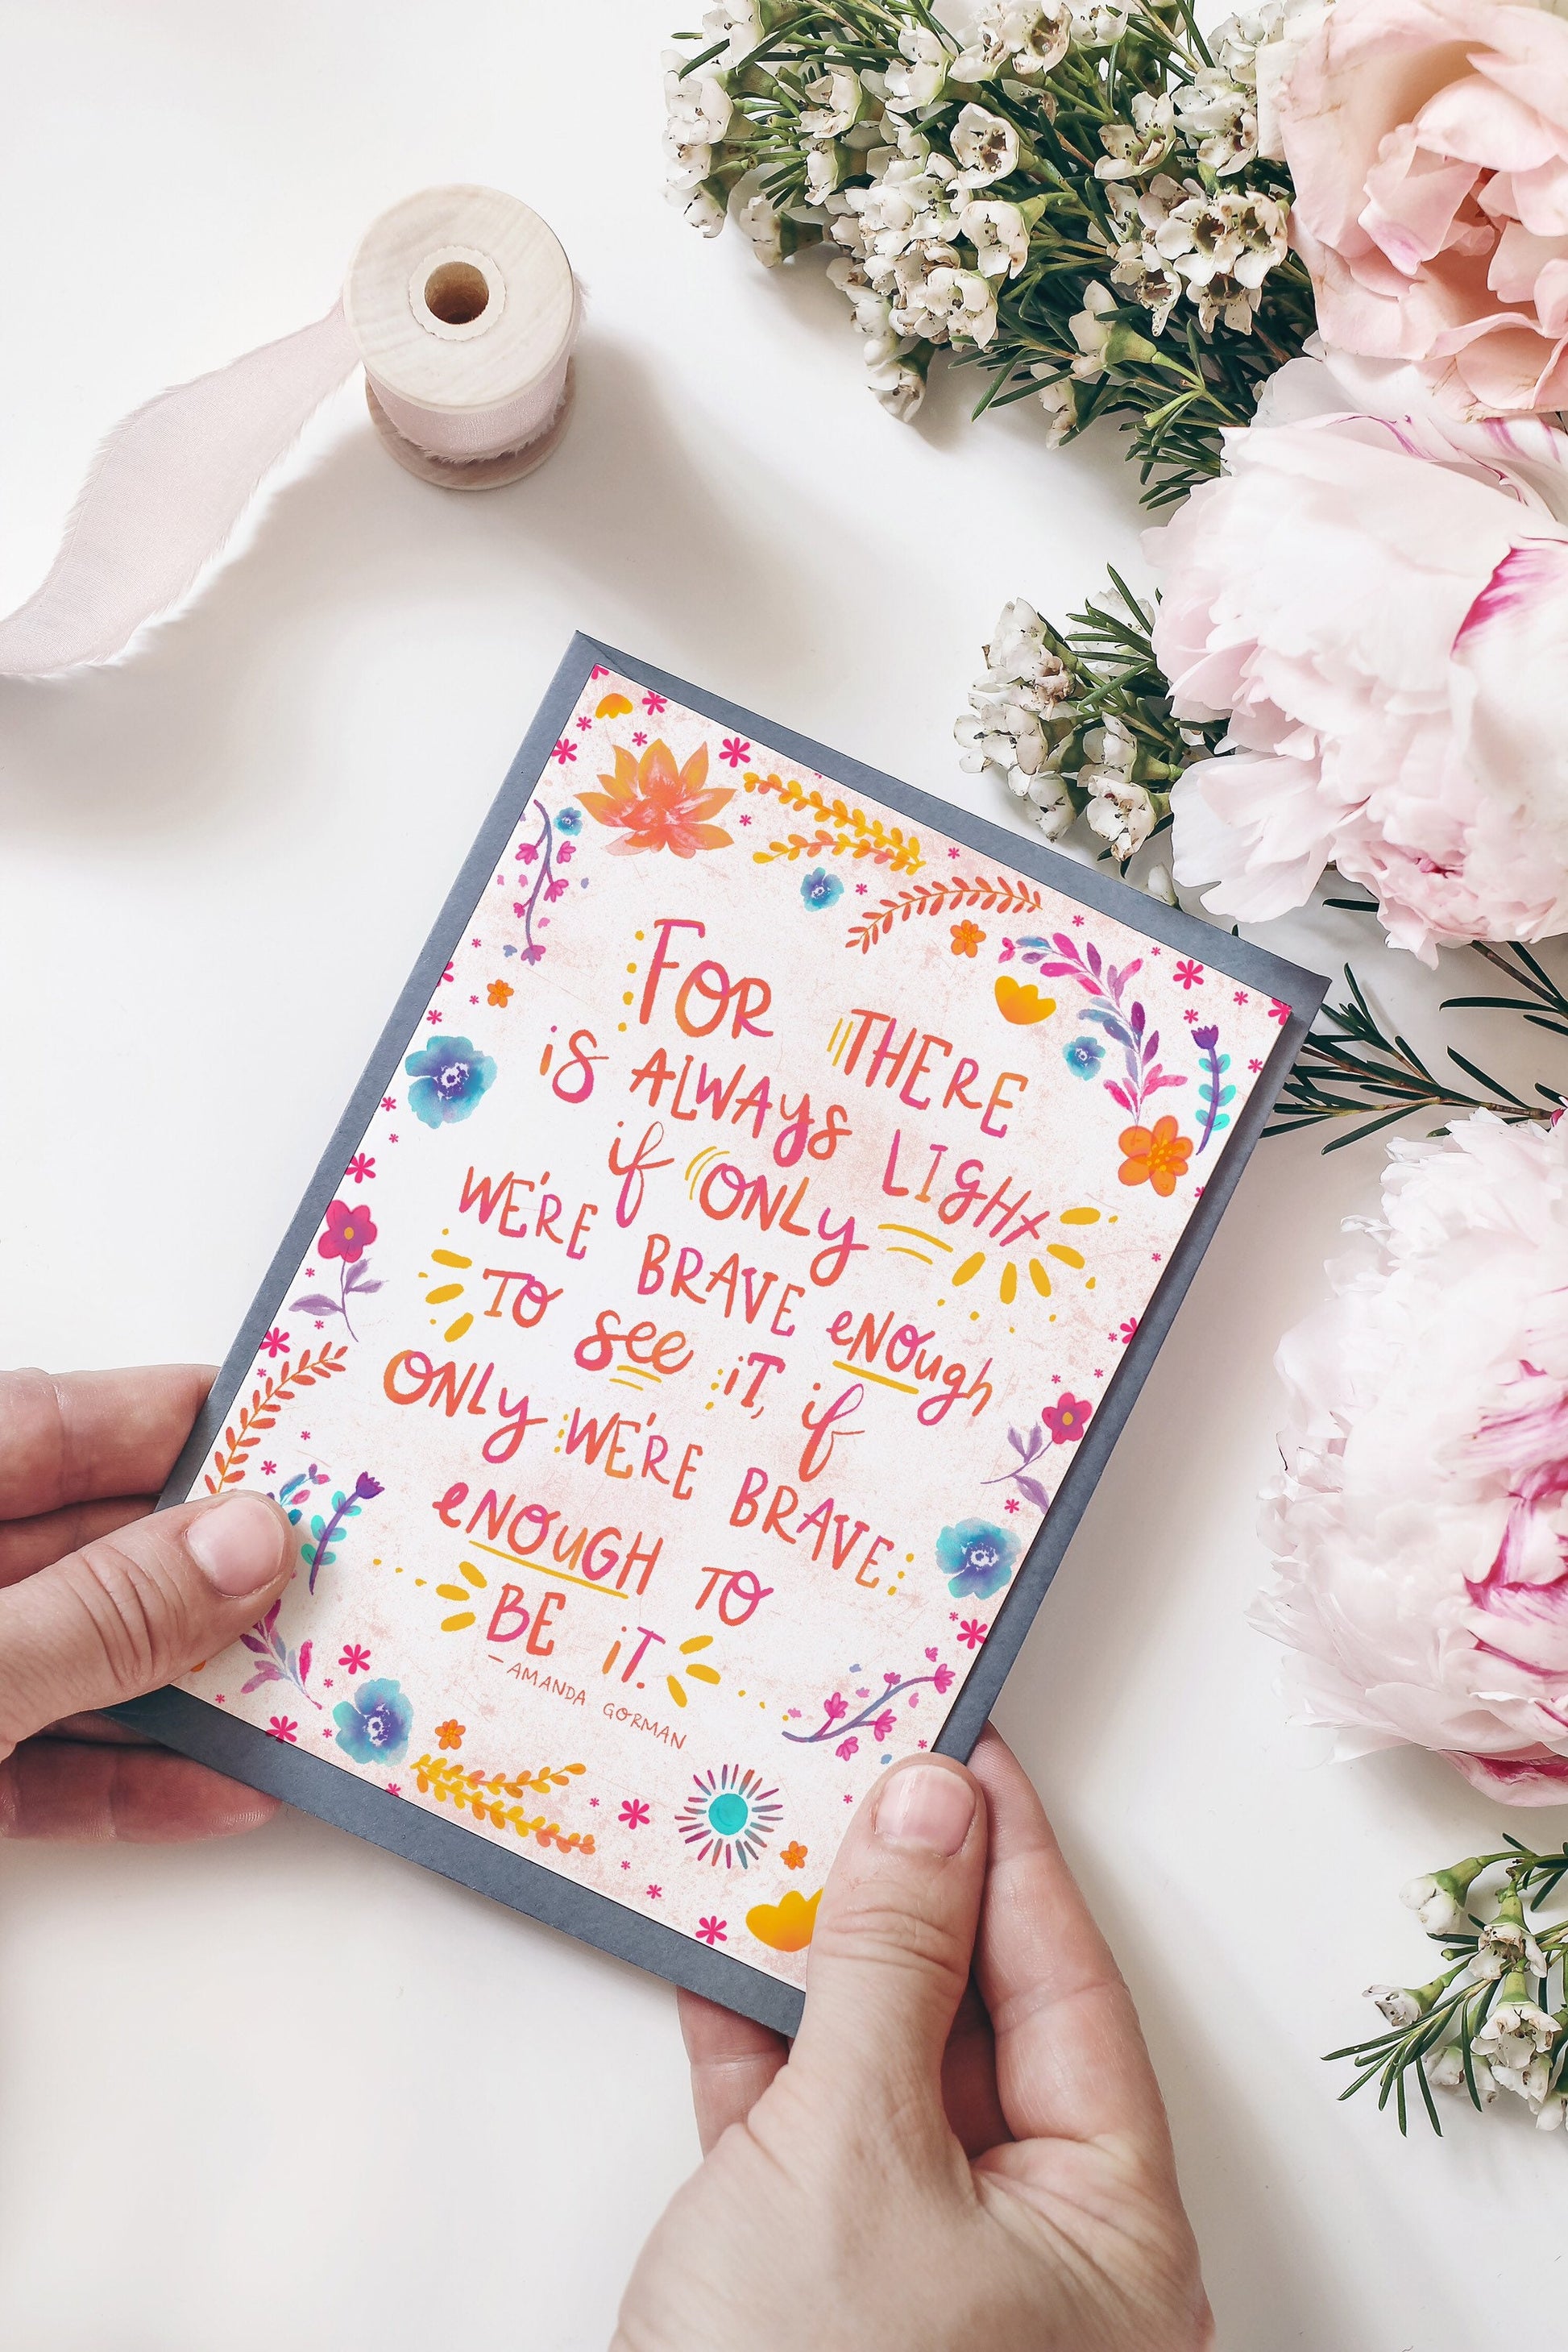 FOR THERE
iS ALWAYS LIGHT
if ONLY
WE'RE BRAVE eNOugh
TO See iT, if
ONLY WE'RE BRAVE
eNOuGH TO
BE iT.
– AMANDA GORMAN